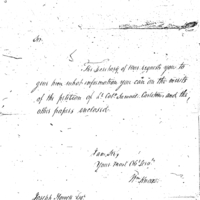 Sir.
The Secretary of War requests you to
give him what information you can on the merits
of the petition of Lt Colo. Samuel Carleton and the
other papers enclosed.
I am Sir,
Your most Obt Servt
Joseph Howell Esqr